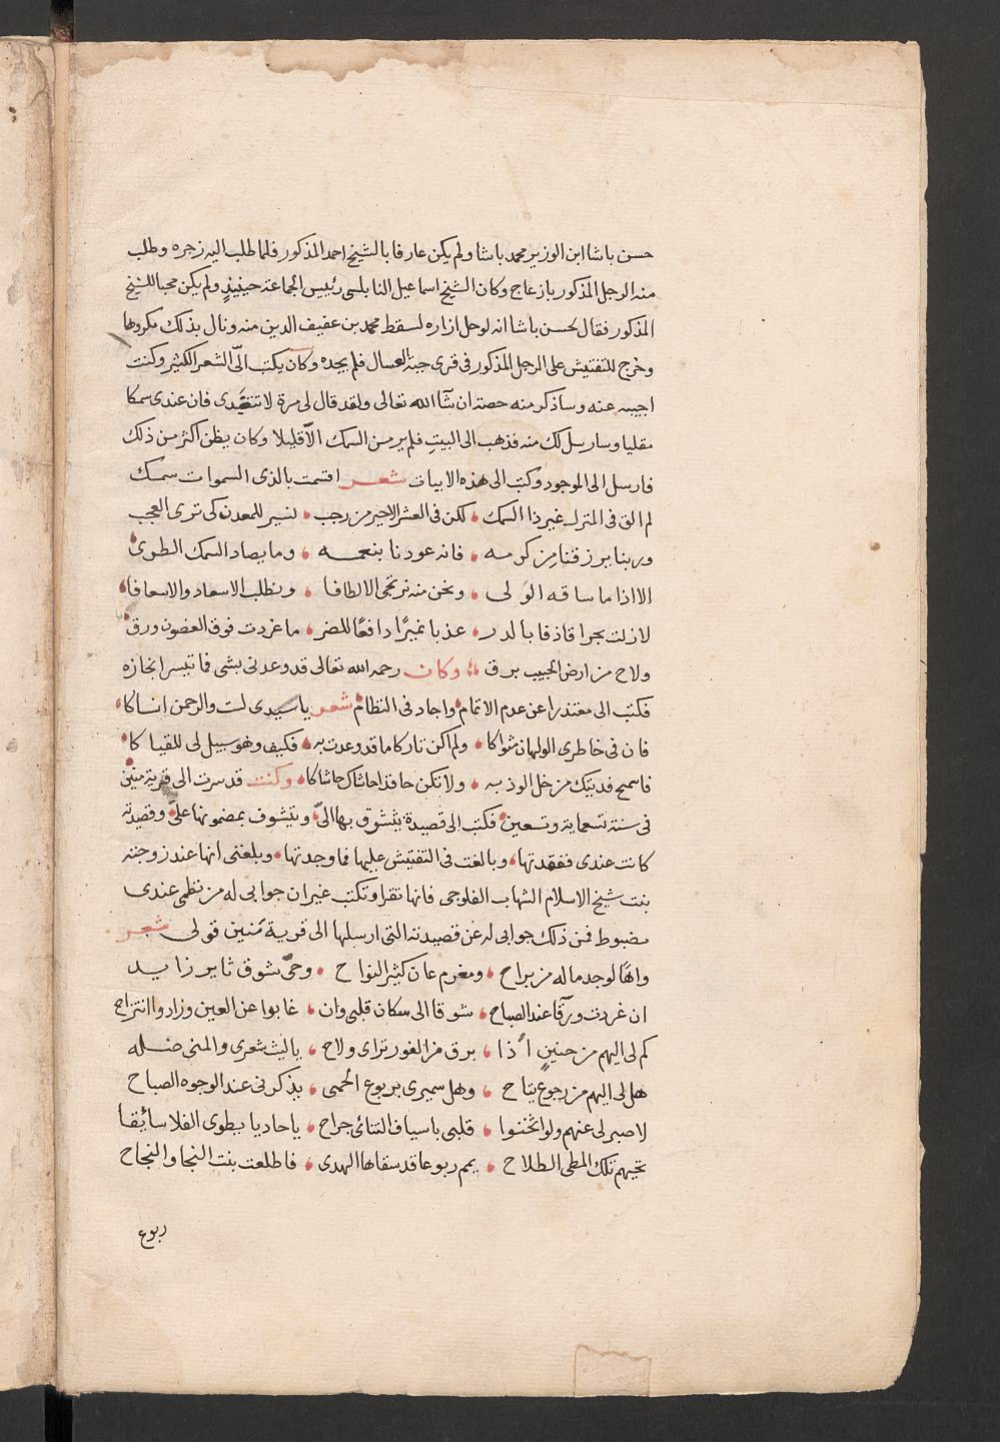 حسن باشا ابن الوزير محمد باشا ولم يكن عارفا بالشيخ احمد المذكور فلما طلب اليه زجره وطلب
منه الرجل المذكور بازعاج وكان الشيخ اسماعيل النابلسى رئيس الجماعة حينيذٍ ولم يكن محبا للشيخ
المذكور فقال لحسن باشا انه لو حل ازاره لسقط محمد بن عفيف الدين منه ونال بذلك مكروها
وخرج للتفتيش على الرجل المذكور فى قرى جبة العسال فلم يجده وكان يكتب الىّ الشعر الكثير وكنت
اجيبه عنه وساذكر منه حصة ان شآ الله تعالى ولقد قال لى مرة لا تتغدى فان عندى سمكا
مقليا وسارسل لك منه فذهب الى البيت فلم ير من السمك الّا قليلا وكان يظن اكثر من ذلك
فارسل الى الموجود وكتب الى هذه الابيات شعر اقسمت بالذى السموات سمك
لم الق فى المنزل غير ذا السمك لكن فى العشر الاخير من رجب نسير للمعدن كى ترى العجب
وربنا يرزقنا من كرمه فانه عودنا بنعمه وما يصاد السمك الطرى
الا اذا ما ساقه الولى ونحن منه نرتجى الالطافا ونطلب الاسعاد والاسعافا
لازلت بحرا قاذفا بالدر عذبا نميرًا دافعًا للضر ما غردت فوق الغصون ورق
ولاح من ارض الحبيب برق وكان رحمه الله تعالى قد وعدنى بشى فاتيسر انجازه
فكتب الى معتذرا عن عدم الاتمام واجاد فى النظام شعر يا سيدى لست والرحمن انساكا
فان فى خاطرى الولهان مثواكا ولم اكن تاركا ما قد وعدت به فكيف وهو سبيل لى للقياكا
فاسمح فديتك من خل الوذ به ولا تكن حاقدا حاشاك حاشاكا وكنت قد سرت الى قرية منين
فى سنة تسعماية وتسعين فكتب الى قصيدة يتشوق بها الىّ ويتشوف بمضمونها علىّ وقصيدته
كانت عندى ففقدتها وبالغت فى التفتيش عليها فا وجدتها وبلغنى انها عند زوجته
بنت شيخ الاسلام الشهاب الفلوجى فانها تقرا وتكتب غير ان جوابى له من نظمى عندى
مضبوط فمن ذلك جوابى له عن قصيدته التى ارسلها الى قرية مَنين قولى شعر
واهًا لوجد ماله من براح ومغرم عان كثير النواح وحىّ شوق ثاير زايد
ان غردت ورقآ عند الصباح شوقا الى سكان قلبى وان غابوا عن العين وزادوا انتزاح
كم لى اليهم من حنينٍ اذا برق من الغور تراى ولاح يا ليت شعرى والمنى ضله
هل لى اليهم من رجوع يتاح وهل سميرى بربوع الحمى يذكرنى عند الوجوه الصباح
لا صبر لى عنهم ولو اثخنوا قلبى باسياف التنائى جراح يا حاديا يطوى الفلا سائقا
تحيهم تلك المطى الطلاح يمم ربوعا قد سقاها الهدى فاطلعت بنت النجا والنجاح
ربوع